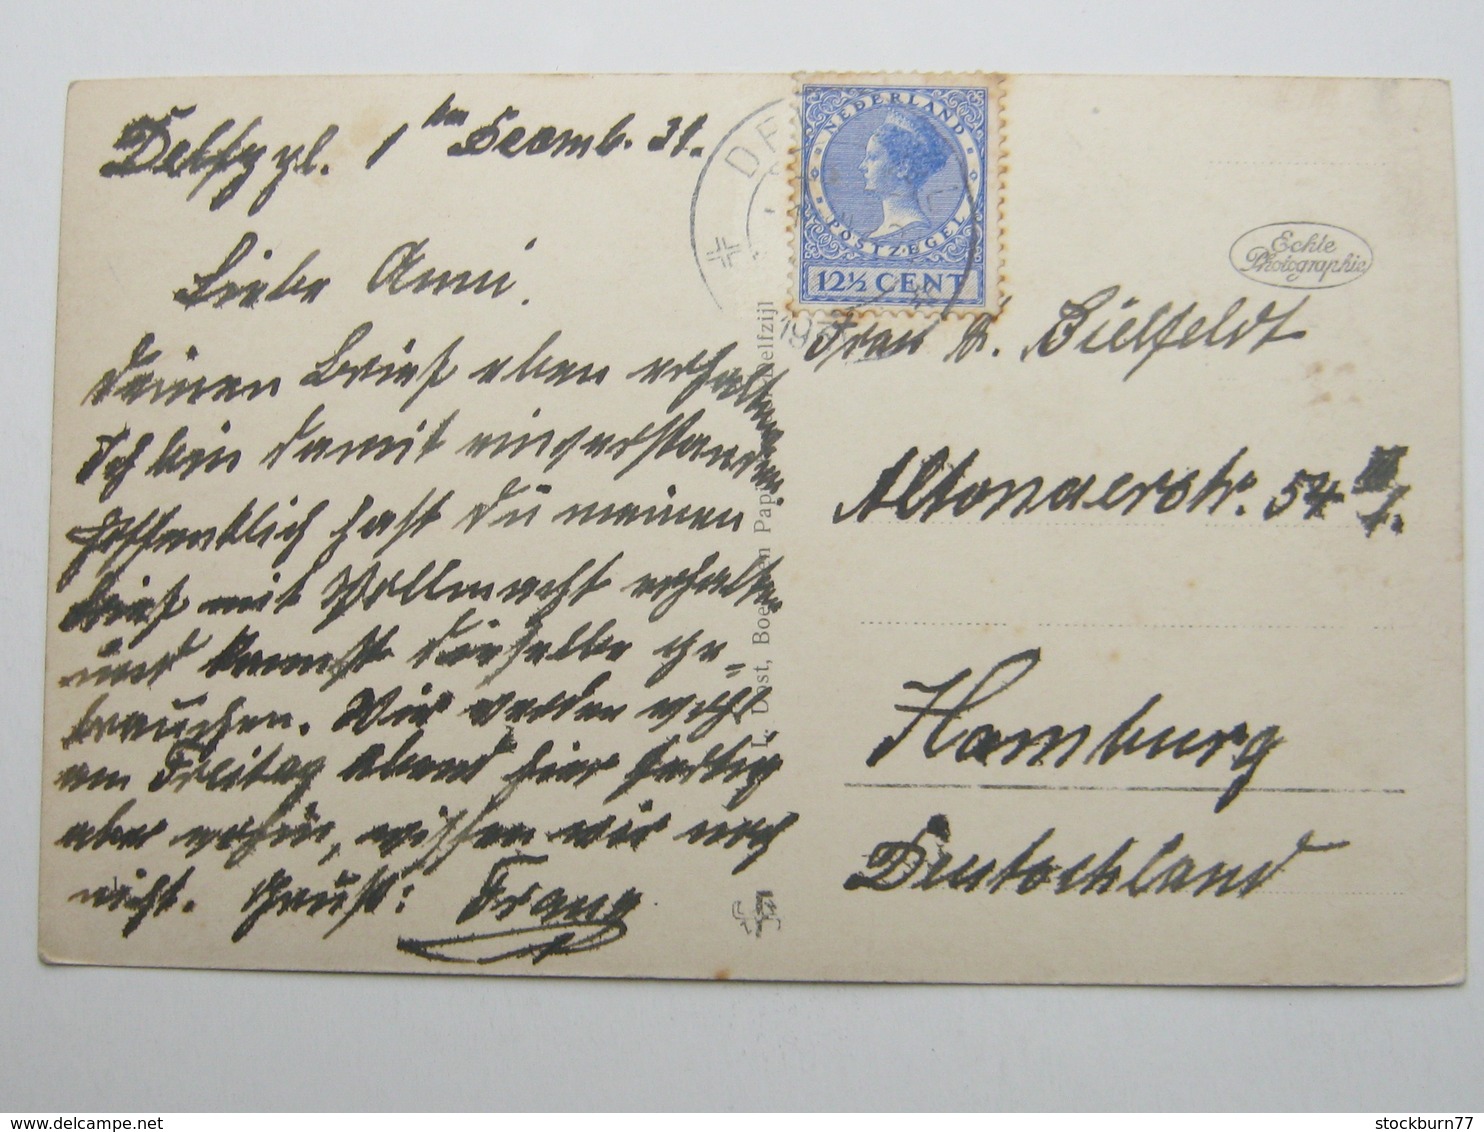 Delfzyl. 1ten Decemb. 31.
Liebe Anni.
Deinen Brief eben erhalten
Ich bin damit einverstanden
Hoffentlich hast Du meinen
Brief mit Vollmacht erhalten
und kannst dieselbe ge-
brauchen. Wir werden wohl
am Freitag Abend hier fertig
aber wohin, wissen wir noch
nicht. Gruß: Franz
NEDERLAND
POSTZEGEL
12½ CENT
Echte
Photographie
Frau A. Bielfeldt
Altonaerstr. 54 III
Hamburg
Deutschland
Dost, Boek en Pap elfzijl
stockburn77